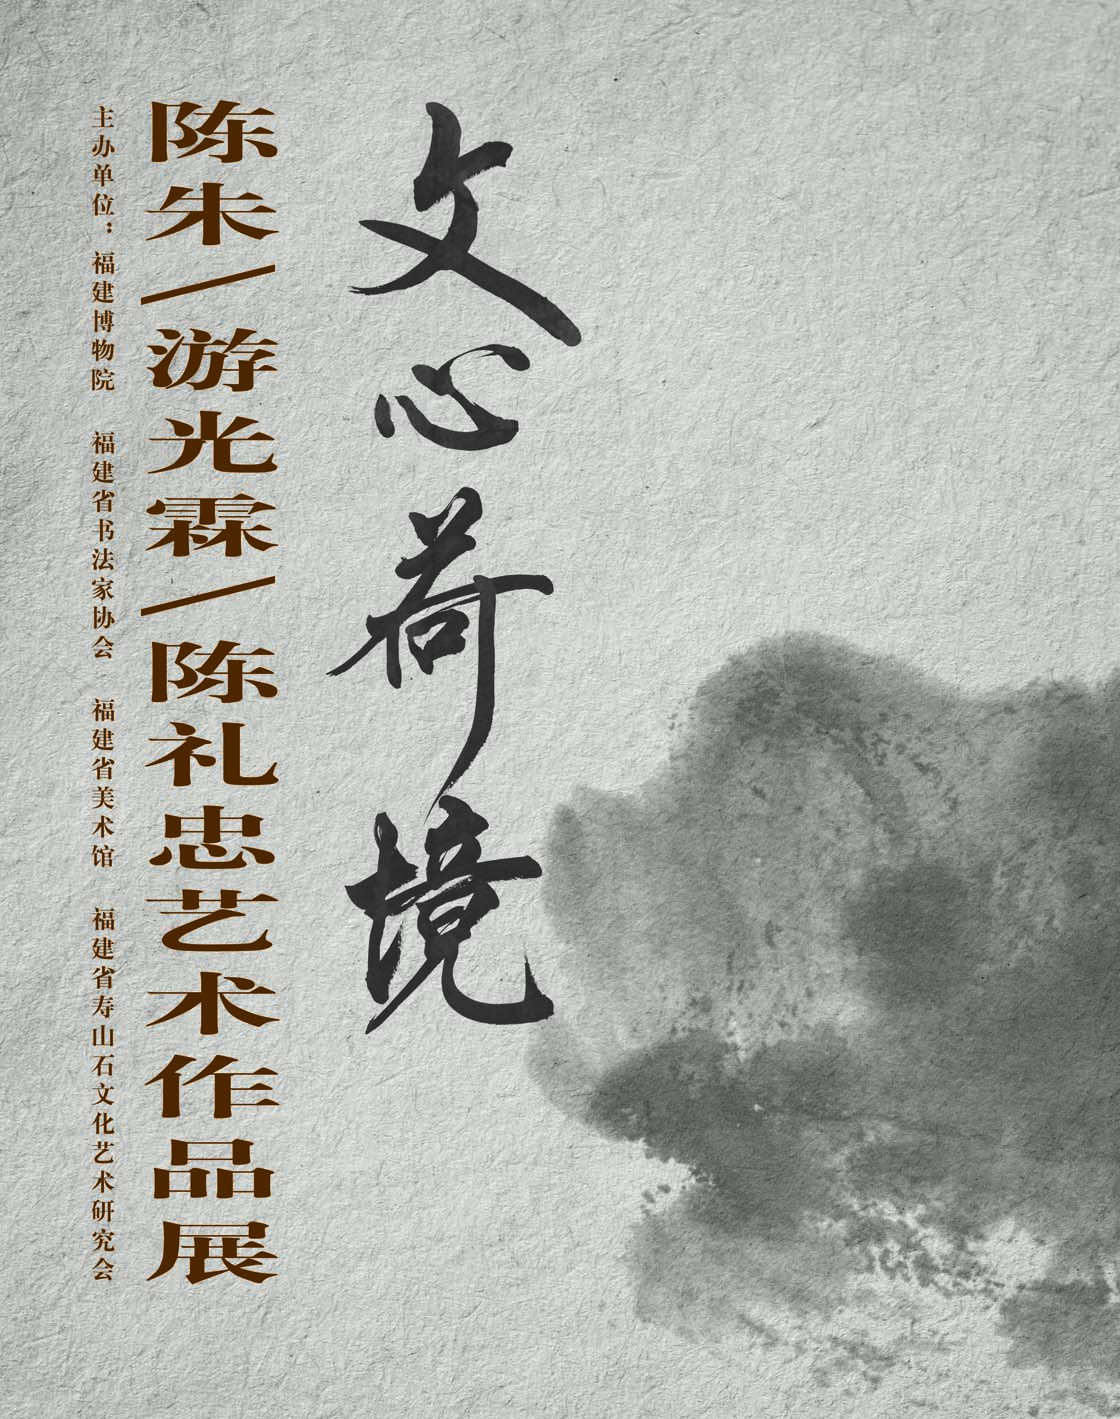 文心荷境
陈朱/游光霖/陈礼忠艺术作品展
主办单位：福建博物院 福建省书法家协会 福建省美术馆 福建省寿山石文化艺术研究会